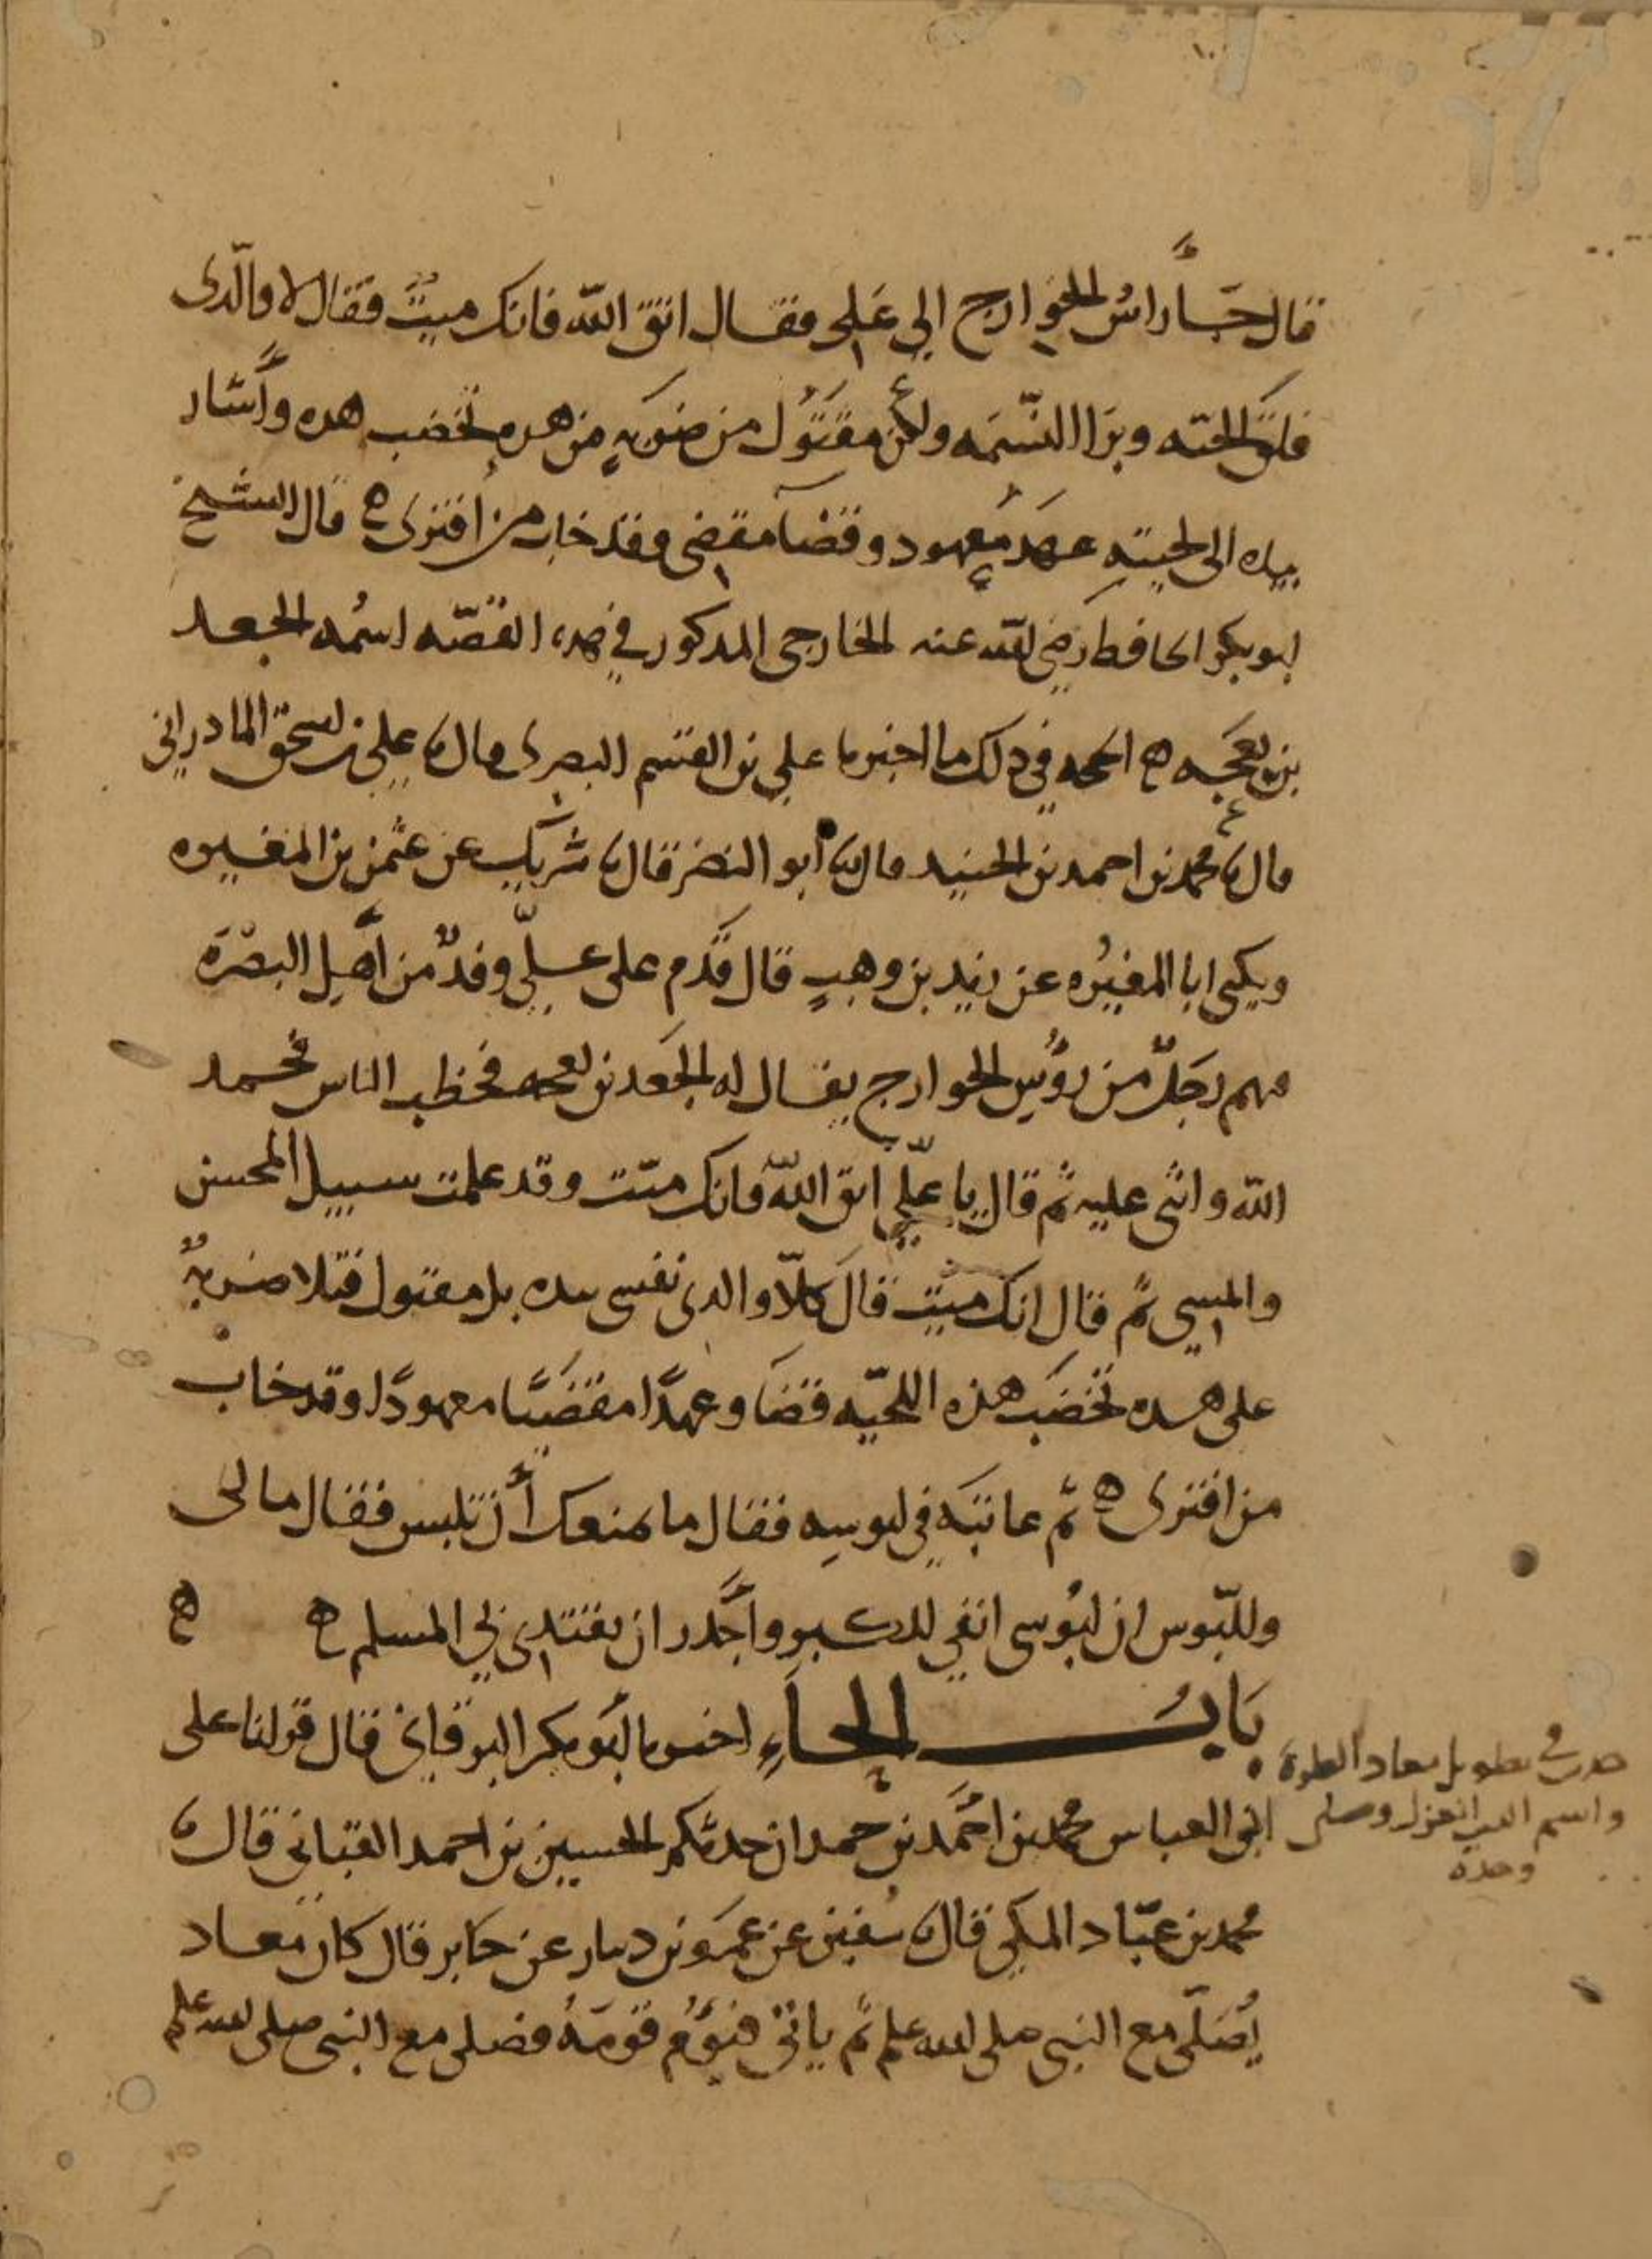 قال جاء راس الخوارج الى على فقال اتق الله فانك ميت فقال لا والذى
فلق الحبه وبرا النسمه ولكن مقتول من ضربه من هذه تخضب هده وأشار
بيده الى لحيته عهد معهود وقضا مقضى وقد خاب من افترى ه قال الشيخ
ابو بكر الحافظ رضى الله عنه الخارجى المذكور في هذه القصه اسمه الجعد
بن بعجه ه الحجه في ذلك ما اخبرنا على بن القسم البصرى قال نا على بن اسحق المادرانى
قال نا محمد بن احمد بن الجنيد قال نا أبو النضر قال نا شريك عن عثمن بن المغيره
ويكنى ابا المغيره عن زيد بن وهب قال قدم على على وفد من أهل البصرة
منهم رجل من رؤس الخوارج يقال له الجعد بن بعجه فخطب الناس فحمد
الله واثنى عليه ثم قال يا على اتق الله فانك ميت وقد علمت سبيل المحسن
والمسي ثم قال انك ميت قال كلا والذى نفسى بيده بل مقتول قتلا ضربة
على هذه تخضب هذه اللحيه قضا وعهدا مقضيا معهودا وقد خاب
من افترى ه ثم عاتبه في لبوسه فقال ما يمنعك أن تلبس فقال ما لى
وللبوس ان لبوسى انفي للكبر وأجدر ان يقتدى بي المسلم ه ه
باب الحاء اخبرنا أبو بكر البرقانى قال قرانا على
ابى العباس محمد بن احمد بن حمدان حدثكم الحسين بن احمد القبانى قال نا
محمد بن عباد المكي قال نا سفين عن عمرو بن دينار عن جابر قال كان معاد
يصلى مع النبى صلى الله علىه ثم ياتى فيؤم قومه فصلى مع النبى صلى الله علىه
تطويل معاد الصلوة
واسم الذى انعزل وصلى
وحده